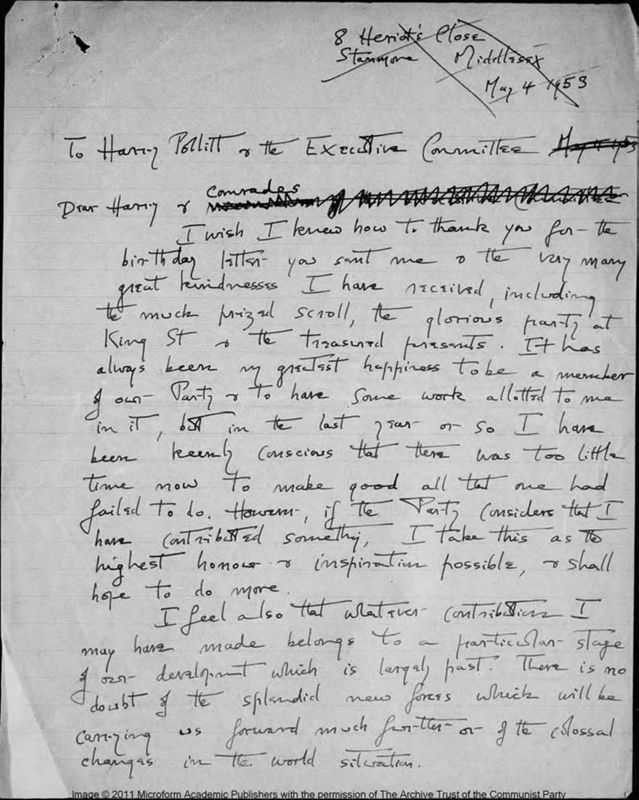 8 Heriot's Close
Stanmore Middlesex
May 4 1953
To Harry Pollitt & the Executive Committee May 4 1953
Dear Harry & comrades
I wish I knew how to thank you for the
birthday letter you sent me & the very many
great kindnesses I have received, including
the much prized scroll, the glorious party at
King St & the treasured presents. It has
always been my greatest happiness to be a member
of our Party & to have some work allotted to me
in it, but in the last year or so I have
been keenly conscious that there was too little
time now to make good all that one had
failed to do. However, if the Party considers that I
have contributed something, I take this as the
highest honour & inspiration possible, & shall
hope to do more.
I feel also that whatever contribution I
may have made belongs to a particular stage
of our development which is largely past. There is no
doubt of the splendid new forces which will be
carrying us forward much further or of the colossal
changes in the world situation.
Image © 2011 Microform Academic Publishers with the permission of The Archive Trust of the Communist Party